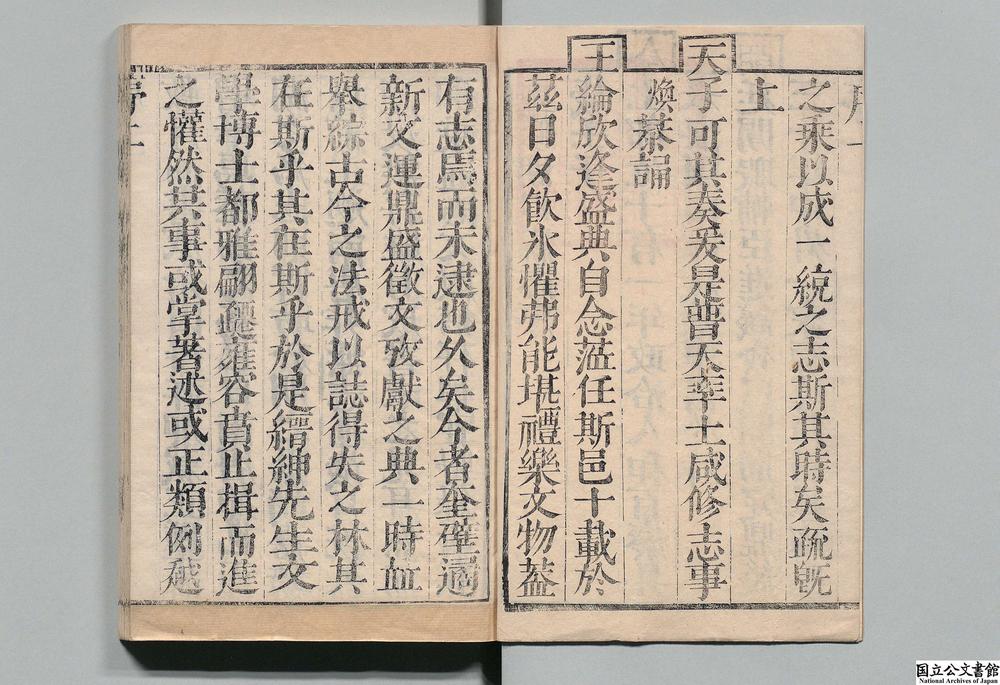 之乘以成一統之志斯其時矣疏旣
上
天子可其奏爰是普天率土咸修志事
煥綦誦
王綸欣逢盛典自念蒞任斯邑十載於
茲日夕飲氷懼弗能堪禮樂文物蓋
有志焉而未逮也久矣今者奎璧
新文運鼎盛徵文攷獻之典一時
舉綜古今之法戒以誌得失之林其
在斯乎其在斯乎於是縉紳先生文
學博士都雅翩躚雍容賁止揖而進
之懽然共事或掌著述或正類例
序二
国立公文書館
National Archives of Japan